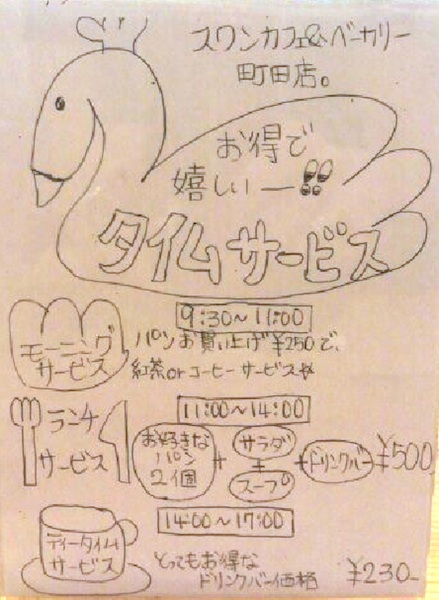 スワンカフェ&ベーカリー
町田店。
お得で
嬉しいー
タイムサービス
9:30～11:00
モーニング
サービス
パンお買い上げ¥250で、
紅茶orコーヒーサービス
11:00～14:00
ランチ
サービス
お好きな
パン
2個
+
サラダ
+
スープ
+
ドリンクバー
¥500
14:00～17:00
ティータイム
サービス
とってもお得な
ドリンクバー価格
¥230-